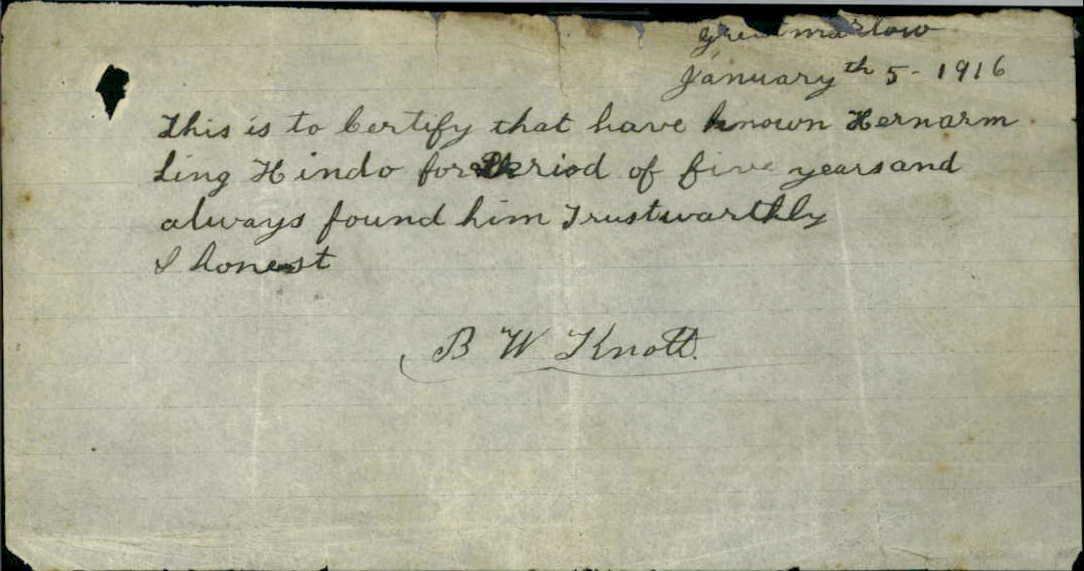 Great marlow
January th 5 - 1916
This is to Certify that have known Hernarm
Sing Hindo for Period of five years and
always found him Trustwarthly
& honest
B W Knott.